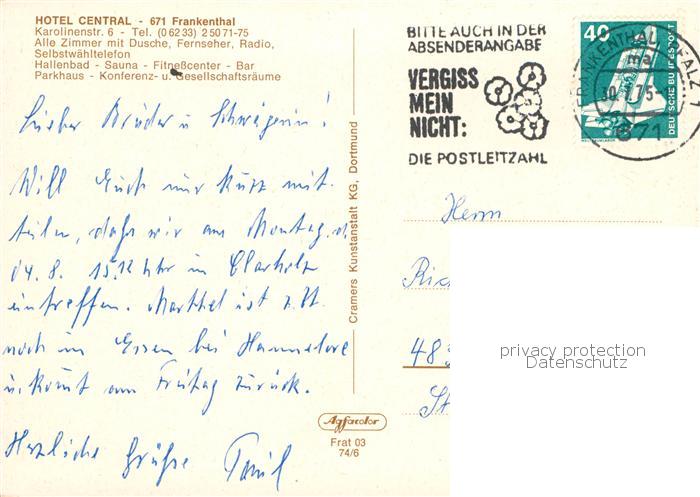 HOTEL CENTRAL - 671 Frankenthal
Karolinenstr. 6 - Tel. (0 62 33) 2 50 71-75
Alle Zimmer mit Dusche, Fernseher, Radio,
Selbstwähltelefon
Hallenbad - Sauna - Fitneßcenter - Bar
Parkhaus - Konferenz- u. Gesellschaftsräume
Lieber Bruder u Schwägerin!
Will Euch nur kurz mit-
teilen, daß wir am Montag, d.
04.8. 15.12 Uhr in Clarholz
eintreffen. ist z. Zt.
noch in Essen bei Hannelore
u. kommt am Freitag zurück.
Herzliche Grüße
Cramers Kunstanstalt KG, Dortmund
Agfacolor
Frat 03
74/6
BITTE AUCH IN DER
ABSENDERANGABE
VERGISS
MEIN
NICHT:
DIE POSTLEITZAHL
40
DEUTSCHE BUNDESPOST
FRANKENTHAL, PFALZ
ma
75
671
Herrn
Ric
48
St
privacy protection
Datenschutz